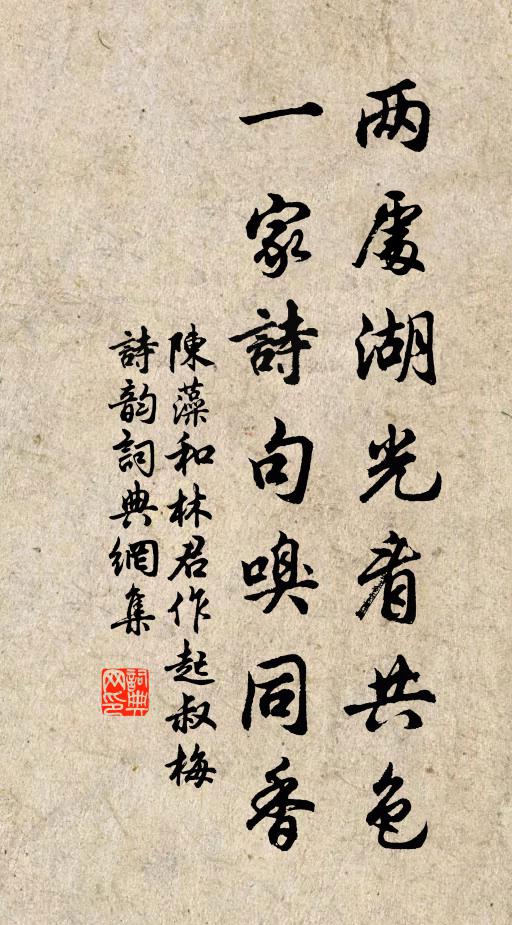 两處湖光看共色
一家詩句嗅同香
陳藻和林君作起叔梅
詩韵詞典網集
詞典
网印